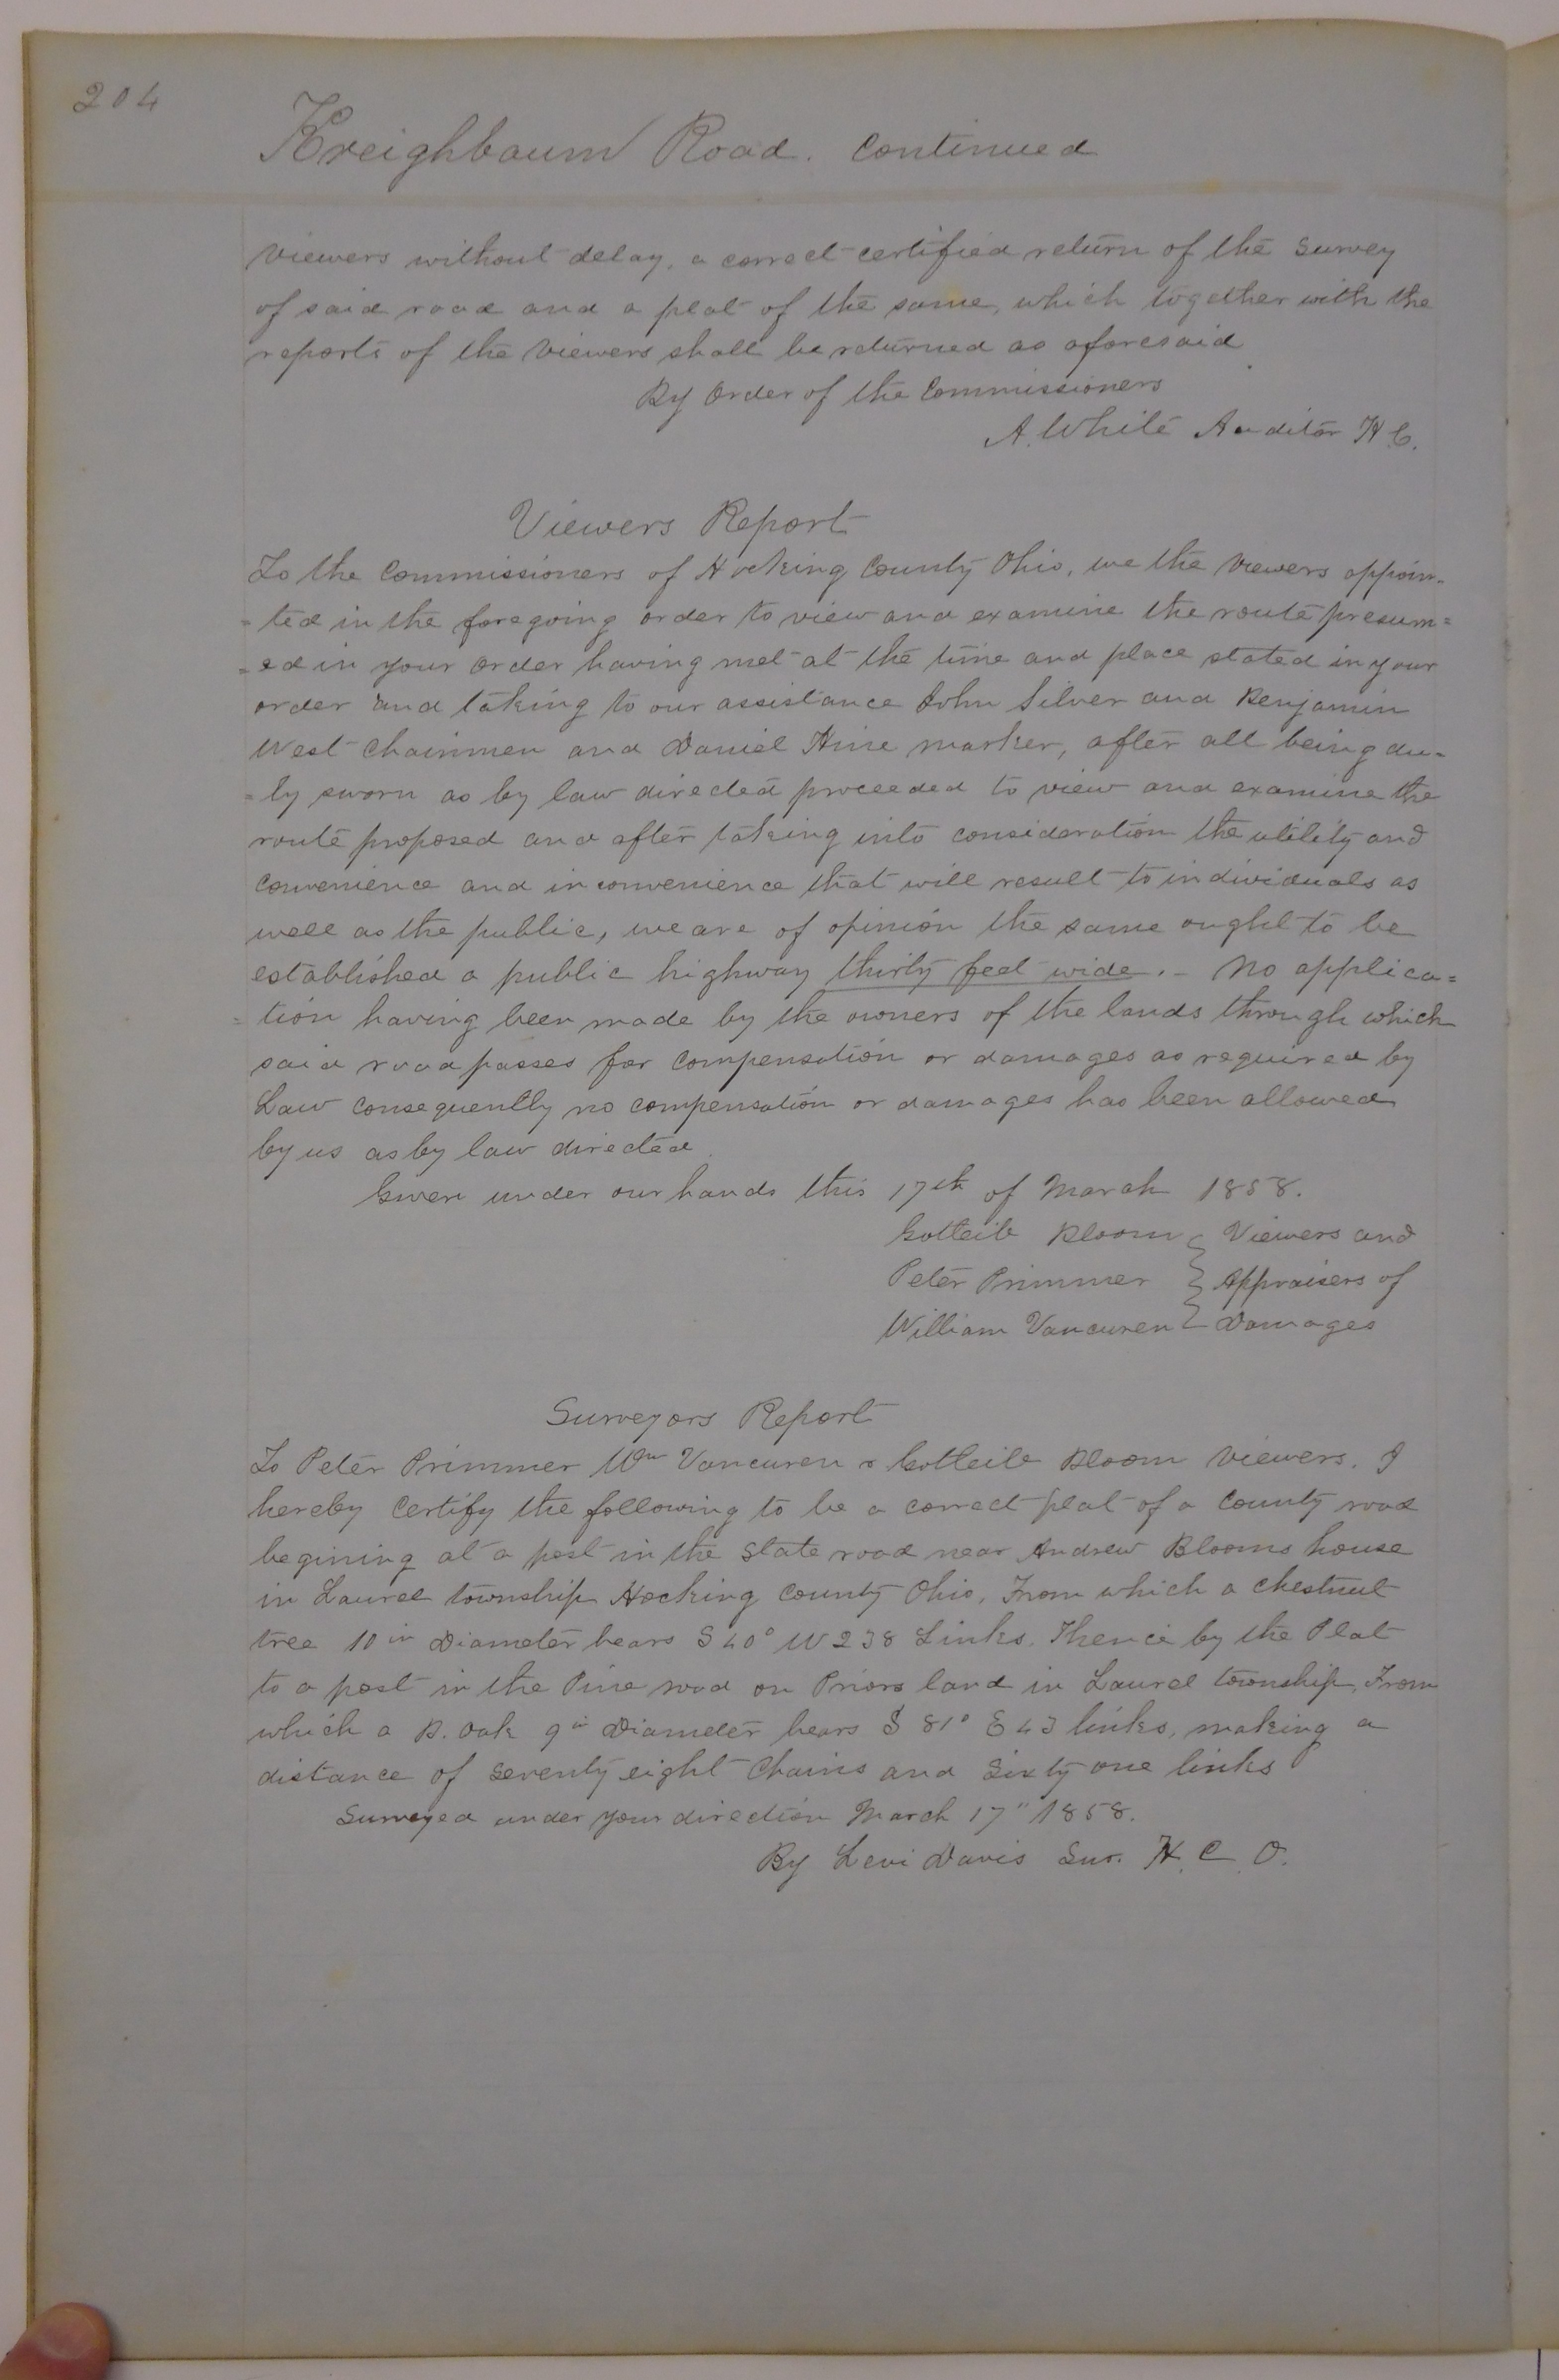 204
Kreighbaum Road. Continued
viewers without delay, a correct certified return of the Survey
of said road and a plat of the same, which together with the
reports of the Viewers shall be returned as aforesaid
By Order of the Commissioners
A. White Auditor H C.
Viewers Report
To the Commissioners of Hocking County Ohio, we the Viewers appoin-
-ted in the foregoing order to view and examine the route presum=
=ed in your order having met at the time and place stated in your
order and taking to our assistance John Silver and Benjamin
West Chainmen and Daniel Hine marker, after all being du-
-ly sworn as by law directed proceeded to view and examine the
route proposed and after taking into consideration the utility and
convenience and inconvenience that will result to individuals as
well as the public, we are of opinion the same ought to be
established a public highway thirty feet wide. - No applica=
=tion having been made by the owners of the lands through which
said road passes for compensation or damages as required by
Law consequently no compensation or damages has been allowed
by us as by law directed
Given under our hands this 17th of March 1858.
Gotteib Bloom } Viewers and
Peter Primmer } Appraisers of
William Vancuren } Damages
Surveyors Report
To Peter Primmer Wm Vancuren & Gotteib Bloom Viewers. I
hereby Certify the following to be a correct plat of a County road
begining at a post in the State road near Andrew Blooms house
in Laurel township Hocking County Ohio, From which a Chestnut
tree 10 in Diameter bears S 40° W 238 Links. Thence by the Plat
to a post in the Pine road on Priors land in Laurel township, From
which a B. Oak 9 in Diameter bears S 81° E 43 links, making a
distance of Seventy eight Chains and Sixty one links
Surveyed under your direction March 17" 1858.
By Levi Davis Sur. H. C. O.